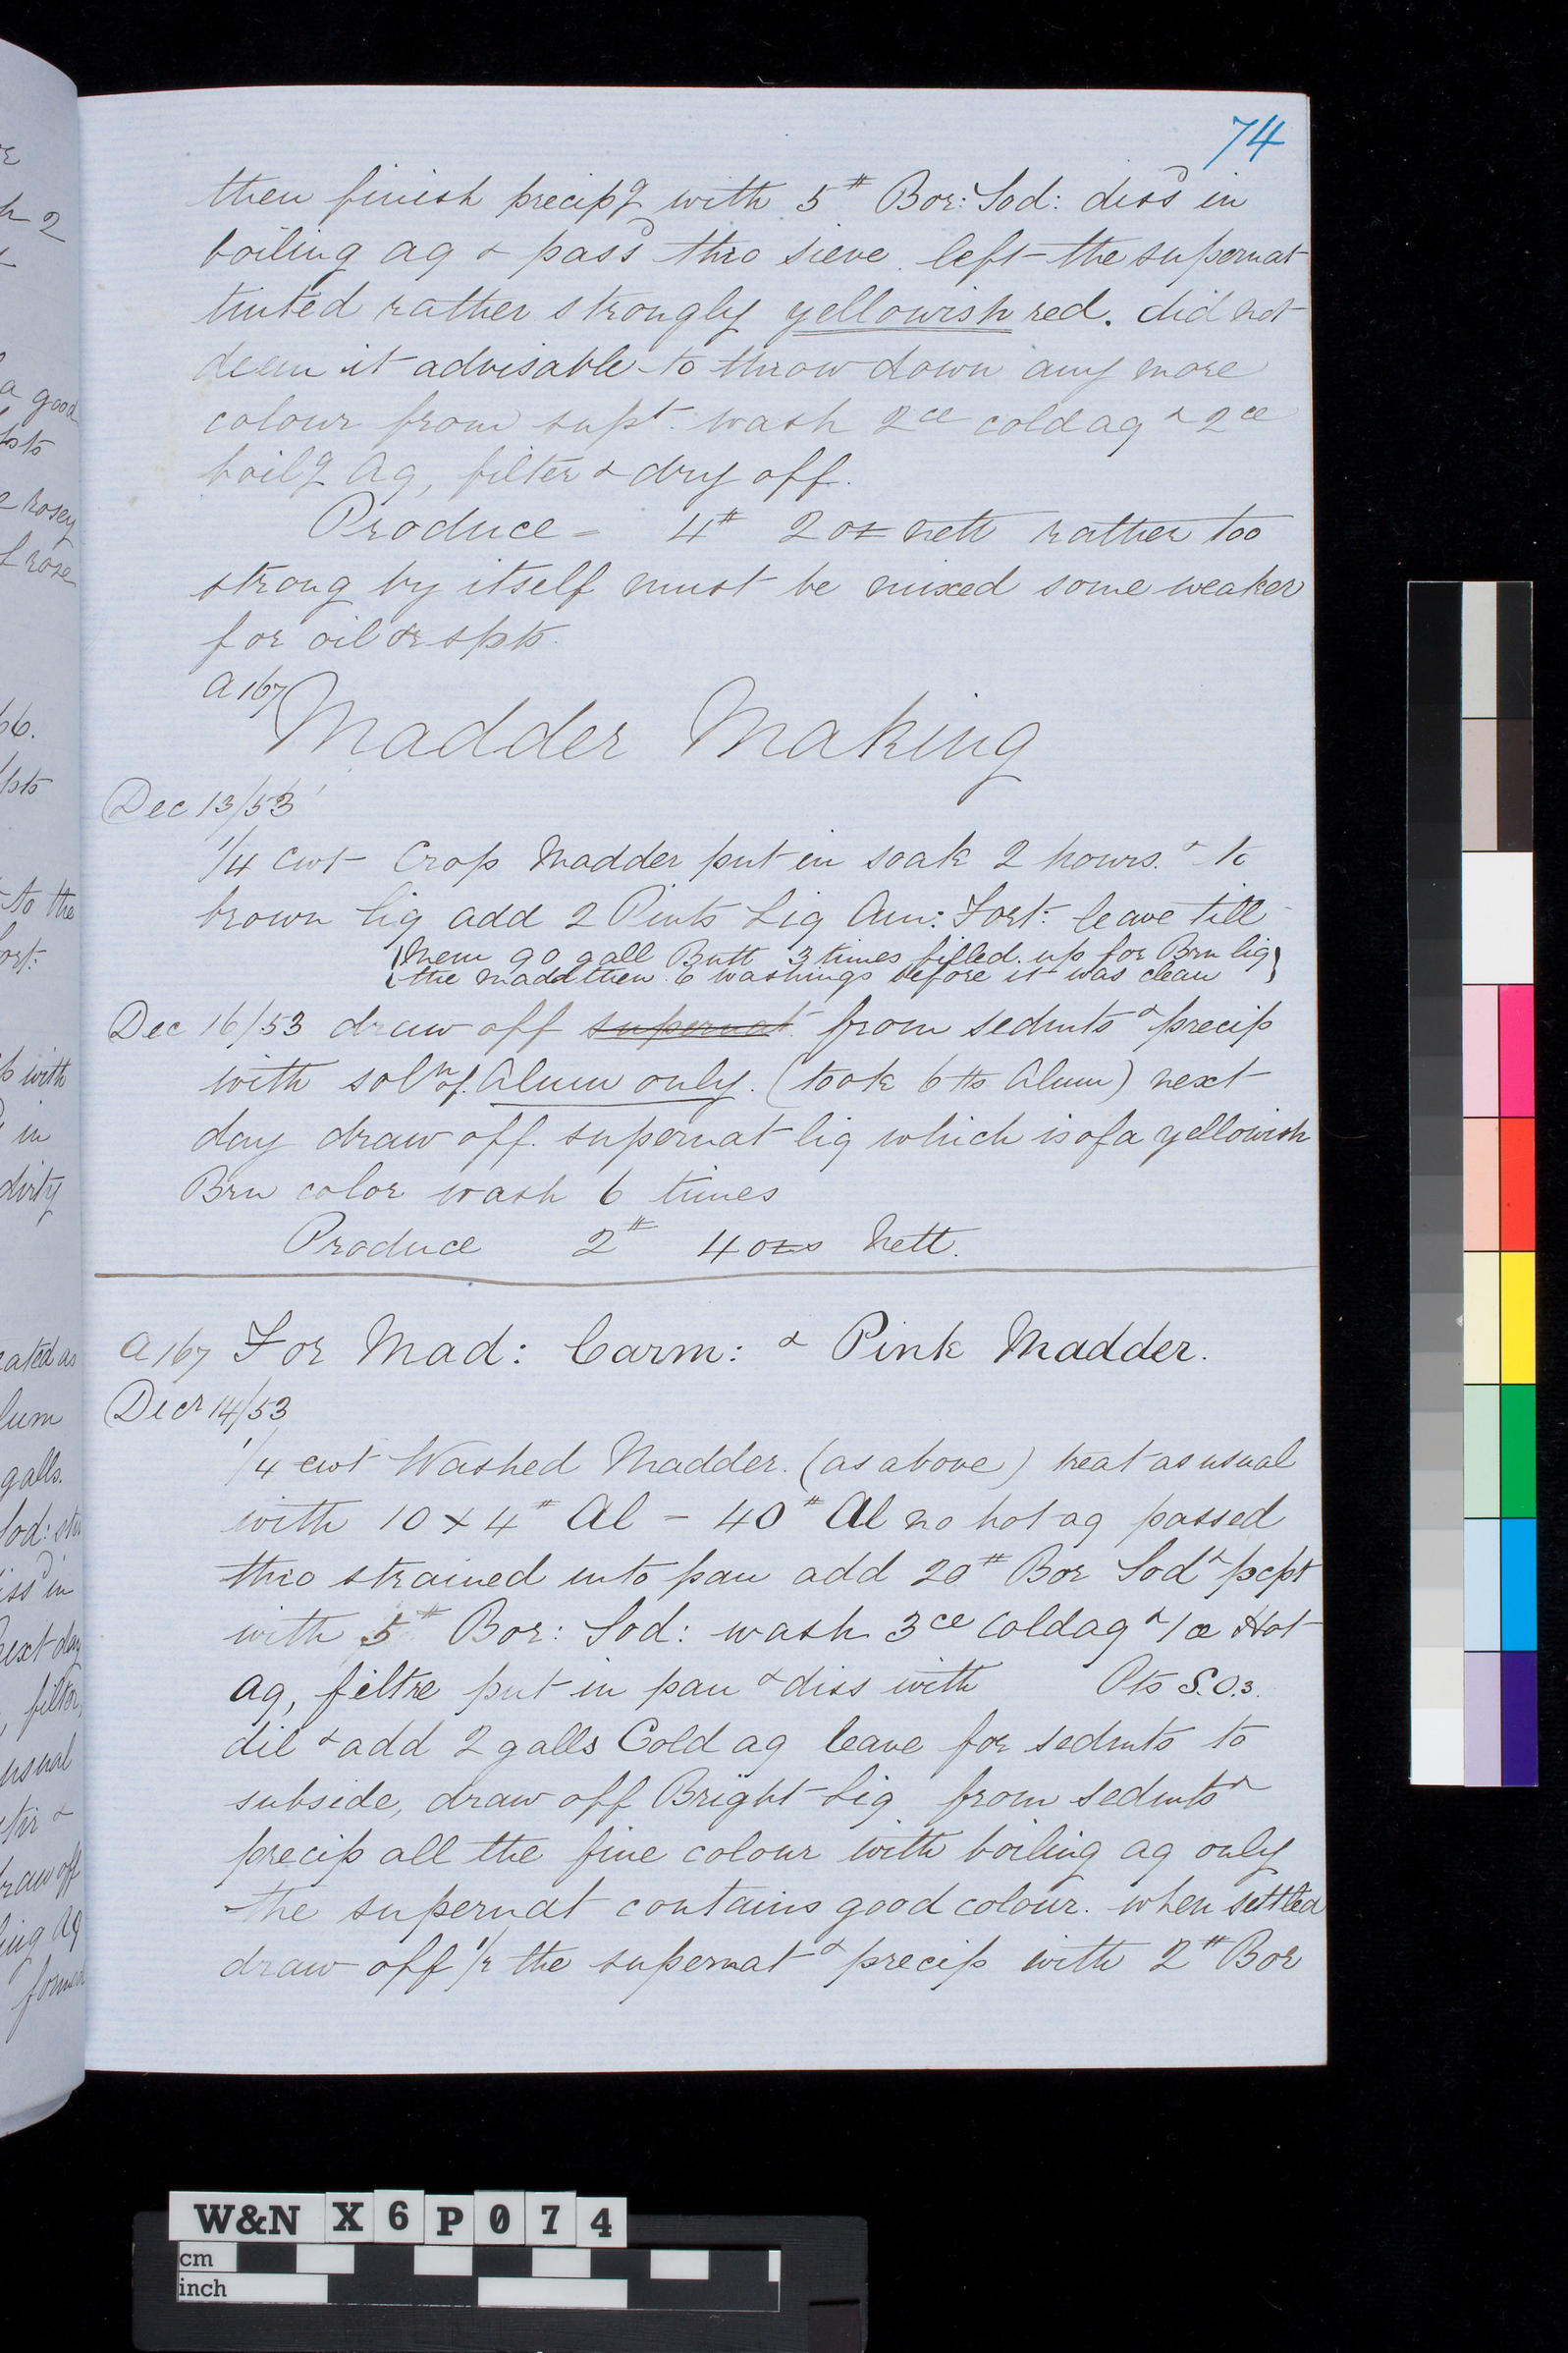 74
then finish precipg with 5# Bor: Sod: dissd in
boiling aq & passd thro sieve. left the supernat
tinted rather strongly yellowish red. did not
deem it advisable to throw down any more
colour from supt. wash 2ce cold aq & 2ce
boilg Aq, filter & dry off.
Produce = 4# 2 oz nett rather too
strong by itself must be mixed some weaker
for oil or spts.
A 167
Madder Making
Dec 13/53
1/4 cwt Crop Madder put in soak 2 hours. & to
brown liq add 2 Pints Liq Am: Fort: leave till
(Mem 90 gall Butt 3 times filled up for Brn liq)
(the Madd then 6 washings before it was clean)
Dec 16/53 draw off supernat from sedmts & precip
with soln of Alum only. (took 6 lbs Alum) next
day draw off supernat liq which is of a yellowish
Brn color wash 6 times
Produce 2# 4 ozs Nett.
A 167 For Mad: Carm: & Pink Madder.
Decr 14/53
1/4 cwt Washed Madder. (as above) treat as usual
with 10 x 4# Al = 40# Al no hot aq passed
thro strained into pan add 20# Bor Sod & pcpt
with 5# Bor: Sod: wash 3ce Cold aq & 1ce Hot
aq, filtre put in pan & diss with Ots S.O.3.
dil & add 2 galls Cold aq leave for sedmts to
subside, draw off Bright Liq from sedmts &
precip all the fine colour with boiling aq only
the supernat contains good colour. when settled
draw off 1/2 the supernat & precip with 2# Bor
W&N X6P074
cm
inch